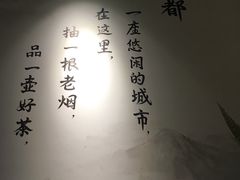 都
一座悠闲的城市，
在这里，
抽一根老烟，
品一壶好茶，